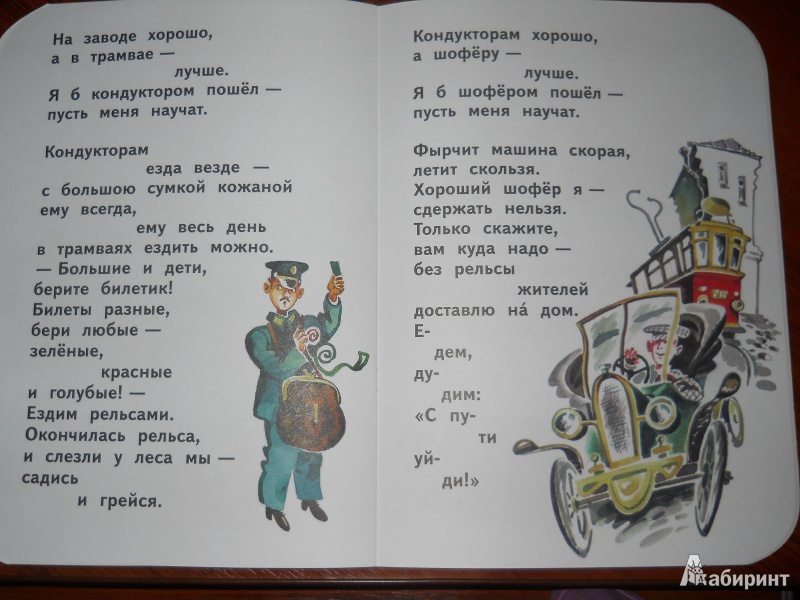 На заводе хорошо,
а в трамвае —
лучше.
Я б кондуктором пошёл —
пусть меня научат.
Кондукторам
езда везде —
с большою сумкой кожаной
ему всегда,
ему весь день
в трамваях ездить можно.
— Большие и дети,
берите билетик!
Билеты разные,
бери любые —
зелёные,
красные
и голубые! —
Ездим рельсами.
Окончилась рельса,
и слезли у леса мы —
садись
и грейся.
Кондукторам хорошо,
а шофёру —
лучше.
Я б шофёром пошёл —
пусть меня научат.
Фырчит машина скорая,
летит скользя.
Хороший шофёр я —
сдержать нельзя.
Только скажите,
вам куда надо —
без рельсы
жителей
доставлю на́ дом.
Е-
дем,
ду-
дим:
«С пу-
ти
уй-
ди!»
Лабиринт